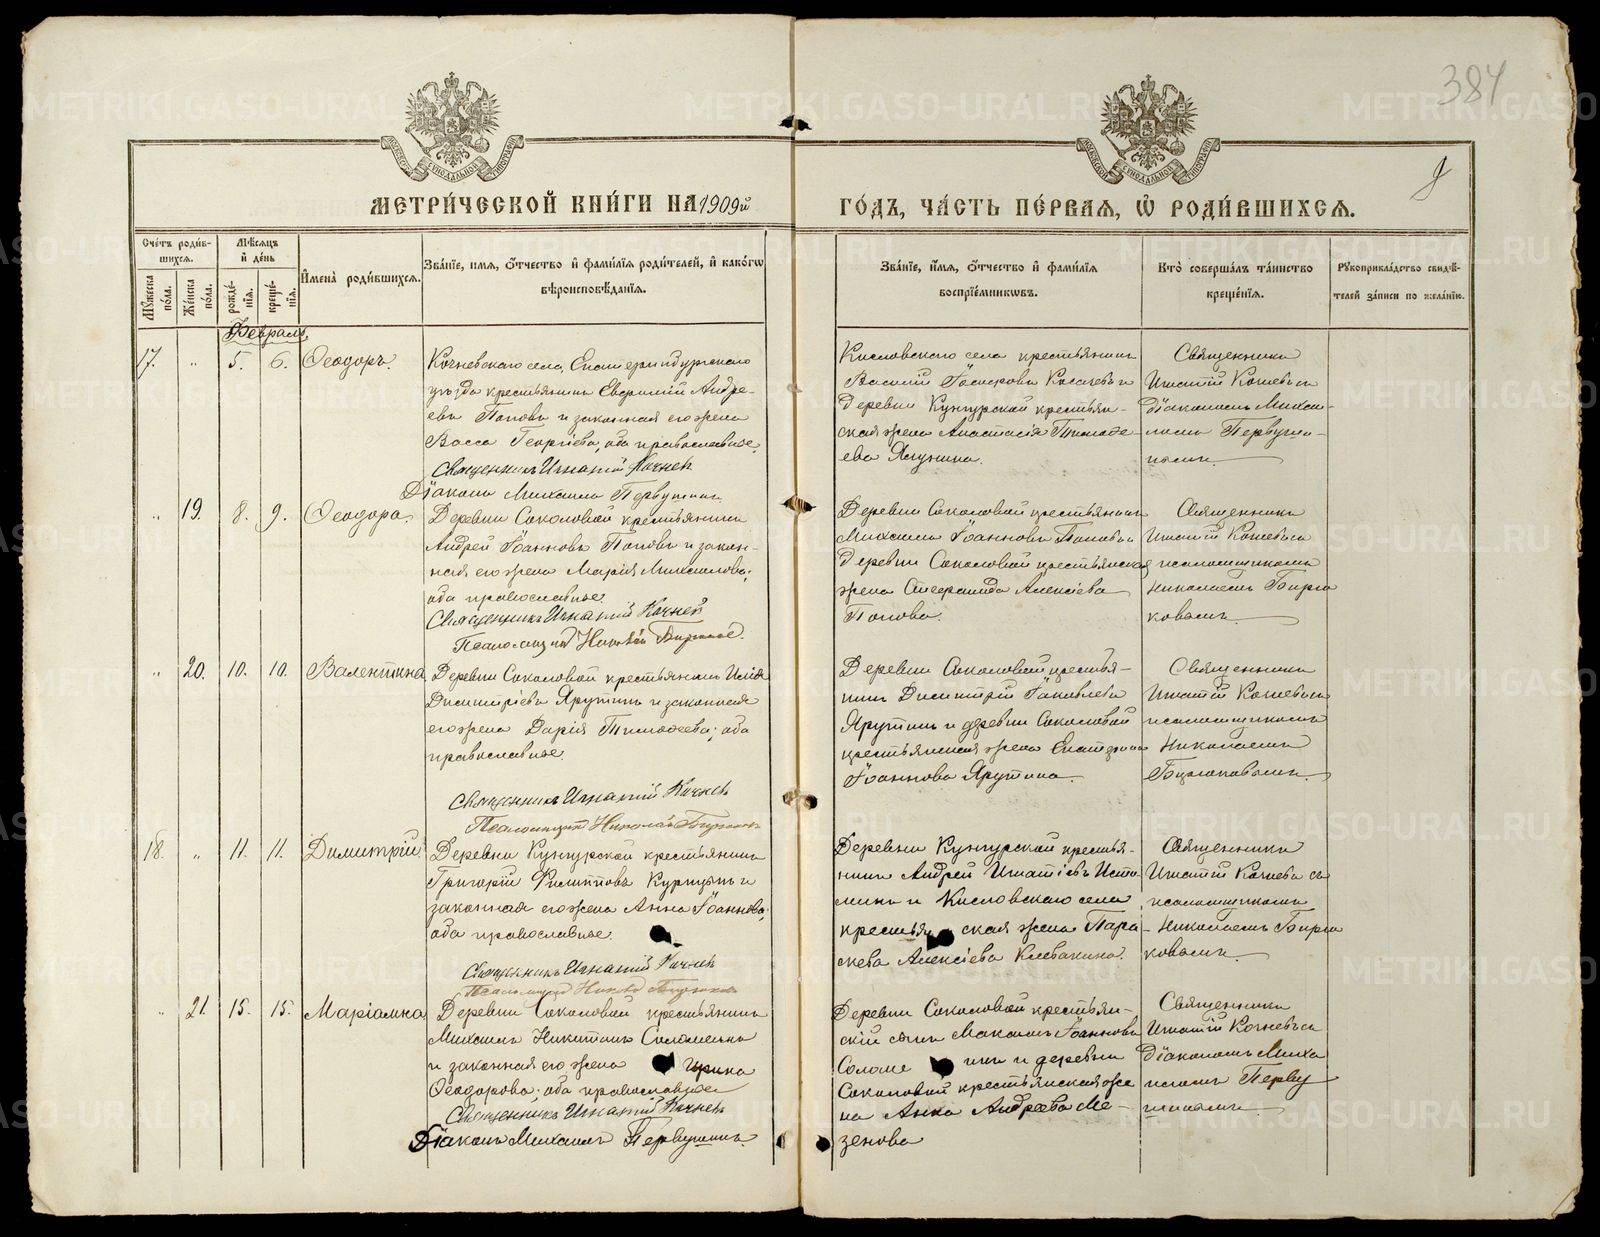 384
МЕТРИ́ЧЕСКОЙ КНИ́ГИ НА 1909й
ГО́ДЪ, ЧА́СТЬ ПЕ́РВАЯ, Ѡ҆ РОДИ́ВШИХСЯ.
Сче́тъ роди́вшихся.
Мꙋ́жеска по́ла.
Же́нска по́ла.
Мѣ́сяцъ и҆ де́нь
рожде́нїя.
креще́нїя.
И҆мена̀ роди́вшихся.
Зва́нїе, и́мя, ѻ҆́тчество и҆ фами́лїя роди́телей, и҆ како́гѡ вѣроисповѣ́данїя.
Зва́нїе, и҆́мя, ѻ҆́тчество и҆ фами́лїя воспрїе́мникѡвъ.
Кто̀ соверша́лъ та́инство креще́нїя.
Рꙋкоприкла́дство свидѣ́телей за́писи по жела́нїю.
Февраль
17. " 5. 6. Ѳеодоръ.
Кочневскаго села, Екатеринбургскаго
уѣзда крестьянинъ Евфимій Андре-
евъ Поповъ и законная его жена
Васса Георгіева, оба православные.
Священникъ Игнатій Кочнев
Діаконъ Михаилъ Первушинъ
Кисловскаго села крестьянинъ
Василій
деревни Кунгурской крестьян-
ская жена Анастасія Тимоѳе-
ева Ягунина.
Священникъ
Игнатій Кочневъ съ
діакономъ Михаи-
ломъ Первуши-
нымъ.
" 19. 8. 9. Ѳеодора.
Деревни Соколовой крестьянинъ
Андрей Іоанновъ Поповъ и закон-
ная его жена Марія Михаилова;
оба православные
Священникъ Игнатій Кочнев
Псаломщикъ Николай Бирюков.
Деревни Соколовой крестьянинъ
Михаилъ Іоанновъ Поповъ и
деревни Соколовой крестьянская
жена Стефанида Алексіева
Попова.
Священникъ
Игнатій Кочневъ съ
псаломщикомъ
Николаемъ Бирю
ковымъ.
" 20. 10. 10. Валентина.
Деревни Соколовой крестьянинъ Илія
Димитріевъ Ярутинъ и законная
его жена Дарія Тимоѳеева; оба
православные.
Священникъ Игнатій Кочнев
Псаломщикъ Николай Бирюков
Деревни Соколовой крестья-
нинъ Димитрій Іаковлевъ
Ярутинъ и деревни Соколовой
крестьянская жена Екатерина
Іоаннова Ярутина.
Священникъ
Игнатій Кочневъ съ
псаломщикомъ
Николаемъ
Бирюковымъ.
18. " 11. 11. Димитрій
Деревни Кунгурской крестьянинъ
Григорій Филипповъ и
законная его жена Анна Іоаннова;
оба православные.
Священникъ Игнатій Кочнев
Псаломщикъ Николай Бирюков
Деревни Кунгурской крестья-
нинъ Андрей Игнатіевъ Исто
минъ и Кисловскаго села
крестьянская жена Пара-
скева Алексіева Клевакина.
Священникъ
Игнатій Кочневъ съ
псаломщикомъ
Николаемъ Бирю
ковымъ.
" 21. 15. 15. Маріамна.
Деревни Соколовой крестьянинъ
Михаилъ Никитинъ
и законная его жена Ирина
Ѳеодорова; оба православные
Священникъ Игнатій Кочнев
Діаконъ Михаилъ Первушинъ.
Деревни Соколовой крестьян-
скій сынъ Максимъ Іоанновъ
Соломе инъ и деревни
Соколовой крестьянская же
на Анна Андреева Ме-
зенова
Священникъ
Игнатій Кочневъ съ
діакономъ Миха
иломъ Перву
шинымъ.
METRIKI.GASO-URAL.RU